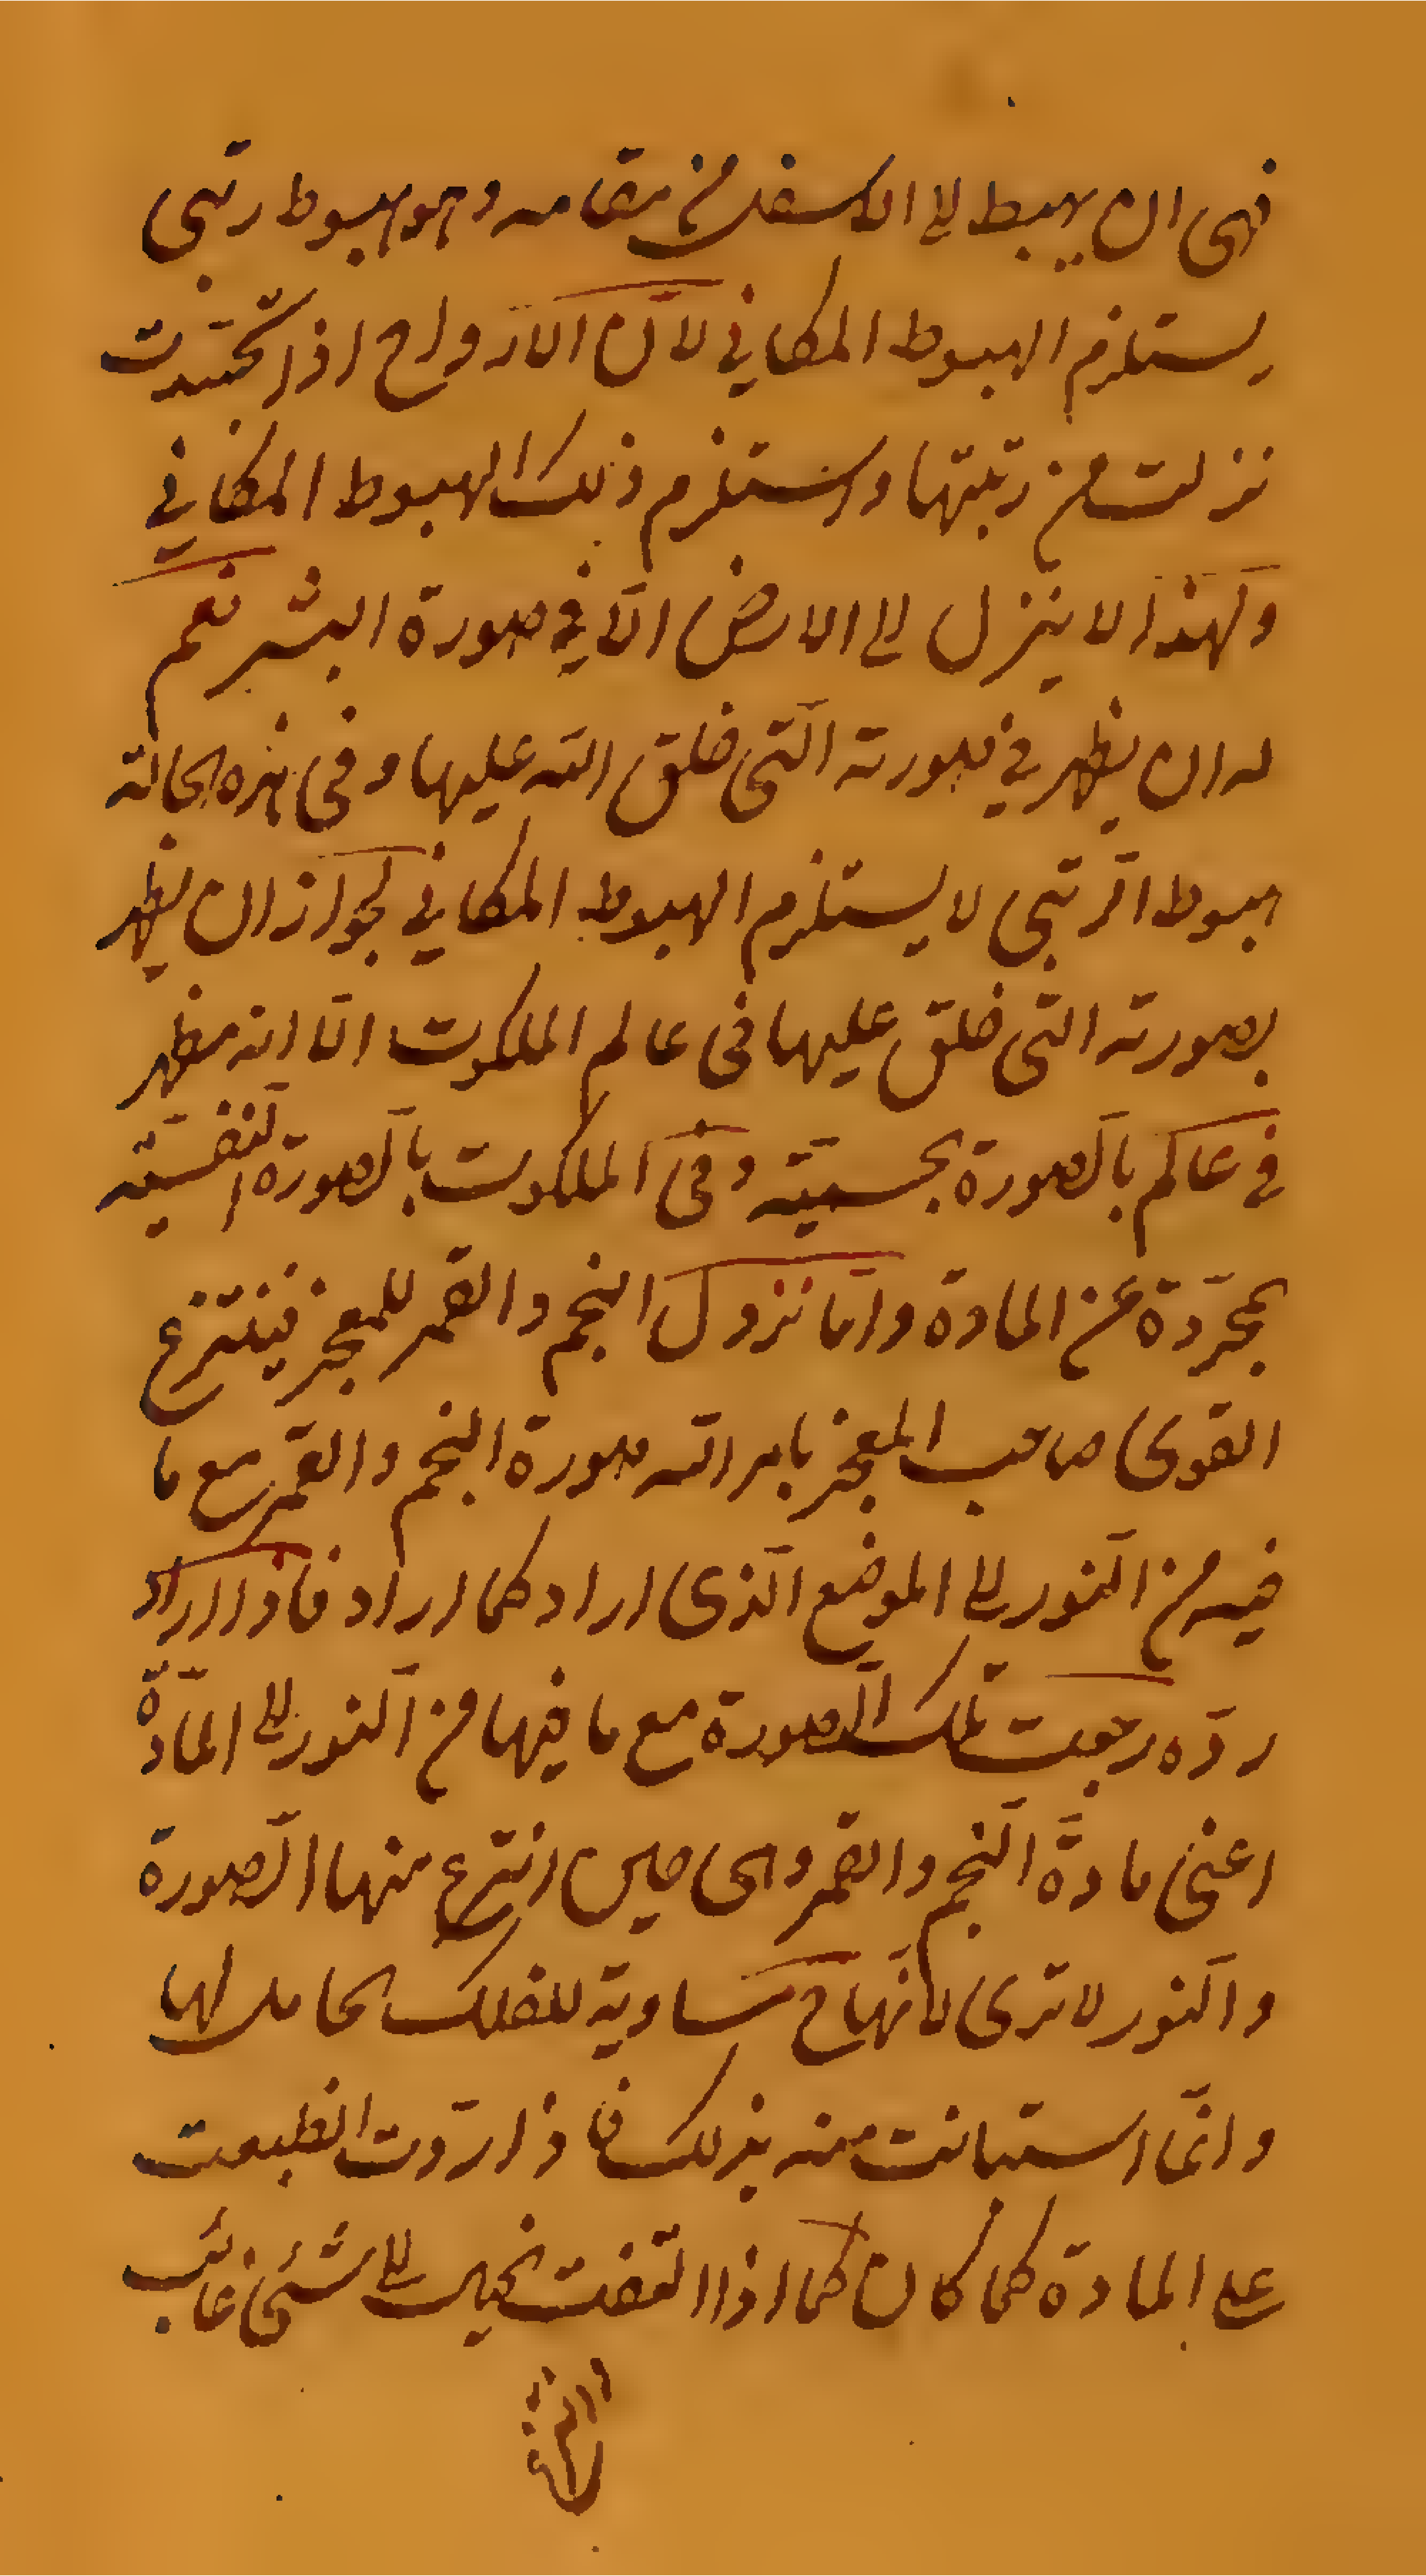 فهى ان يهبط الى الاسفل من مقامه وهو هبوط رتبى
يستلزم الهبوط المكاني لانّ الارواح اذا تجسّدت
نزلت من رتبتها واستلزم ذلك الهبوط المكاني
ولهذا لا ينزل الى الارض الّا في صورة البشر نعم
له ان يظهر في صورته الّتى خلق اللّه عليها وفى هذه الحالة
هبوط الرّتبى لا يستلزم الهبوط المكاني لجواز ان يظهر
بصورته التى خلق عليها فى عالم الملكوت الّا انه مظهر
في عالم بالصّورة الجسميّة وفى الملكوت بالصّورة النّفسيّة
المجرّدة عن المادة وامّا نزول النجم والقمر للمعجز فينتزع
القوى صاحب المعجز بامر اللّه صورة النجم والقمر مع ما
فيه من النّور الى الموضع الّذى اراد كما اراد فاذا اراد
ردّه رجعت تلك الصّورة مع ما فيها من النّور الى المادّة
اعنى مادّة النّجم والقمر وهى حين انتزع منها الصّورة
والنّور لا ترى لانّها ح مساوية للفلك الحامل لها
وانّما استبانت منه بذلك فاذا ردّت انطبعت
على المادة كما كان كما اذا التفت بخيالك الى شئ غائب